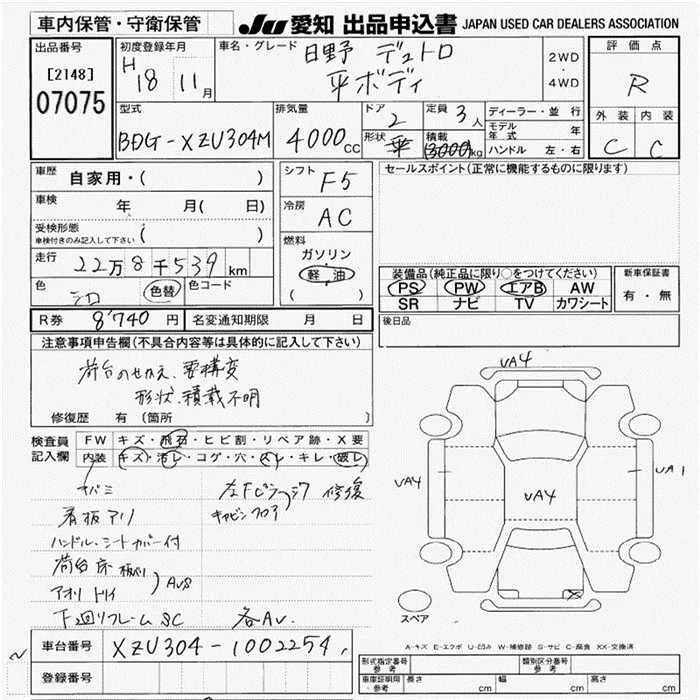 車内保管・守衛保管
JU 愛知 出品申込書 JAPAN USED CAR DEALERS ASSOCIATION
出品番号
[2148]
07075
初度登録年月
H 18 11月
車名・グレード
日野 デュトロ
平ボディ
2WD
・
4WD
評価点
R
外装 内装
C C
型式
BDG-XZU304M
排気量
4000cc
ドア 2
形状 平
定員 3人
積載 3000kg
ディーラー・並行
モデル年式 年
ハンドル 左・右
車歴
自家用・( )
車検
年 月( 日)
受検形態
車検付きのみ記入して下さい ( )
走行
22万8千539km
色
シロ
色替
色コード
シフト
F5
冷房
AC
燃料
ガソリン
軽油
( )
セールスポイント(正常に機能するものに限ります)
装備品(純正品に限り○をつけてください)
PS PW エアB AW
SR ナビ TV カワシート
新車保証書
有・無
R券 8'740円
名変通知期限 月 日
後日品
注意事項申告欄(不具合内容等は具体的に記入して下さい)
荷台のせかえ、要構変
形状、積載不明
修復歴 有(箇所 )
検査員記入欄
FW キズ・飛石・ヒビ割・リペア跡・X要
内装 キズ・汚レ・コゲ・穴・スレ・キレ・破レ
サバミ
看板アリ
ハンドル・シートカバー付
荷台床板バリ
アオリトリイ
AUS
下回リフレームSC
修復
キャビンフロア
各AU.
VA4
VA4
VA4
VA1
スペア
A-キズ E-エクボ U-凹み W-補修跡 S-サビ C-腐食 XX-交換済
車台番号
XZU304-1002254
登録番号
型式指定番号 参考
類別区分番号 参考
車庫証明用 参考
長さ cm
幅 cm
高さ cm